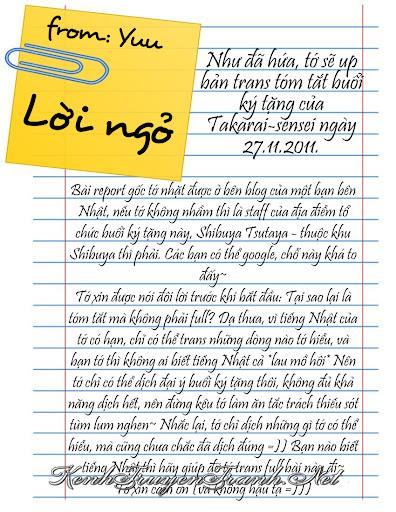 from: Yuu
Lời ngỏ
Như đã hứa, tớ sẽ up
bản trans tóm tắt buổi
ký tặng của
Takarai-sensei ngày
27.11.2011.
Bài report gốc tớ nhặt được ở bên blog của một bạn bên
Nhật, nếu tớ không nhầm thì là staff của địa điểm tổ
chức buổi ký tặng này, Shibuya Tsutaya - thuộc khu
Shibuya thì phải. Các bạn có thể google, chỗ này khá to
đấy~
Tớ xin được nói đôi lời trước khi bắt đầu: Tại sao lại là
tóm tắt mà không phải full? Dạ thưa, vì tiếng Nhật của
tớ có hạn, chỉ có thể trans những dòng nào tớ hiểu, và
bạn tớ thì không ai biết tiếng Nhật cả *lau mồ hôi* Nên
tớ chỉ có thể dịch đại ý buổi ký tặng thôi, không đủ khả
năng dịch hết, nên đừng kêu tớ làm ăn tắc trách thiếu sót
tùm lum nghen~ Nhắc lại, tớ chỉ dịch những gì tớ có thể
hiểu, mà cũng chưa chắc đã dịch đúng =]] Bạn nào biết
tiếng Nhật thì hãy giúp đỡ tớ trans full bài này đi~
Tớ xin cảm ơn (và không hậu tạ =]]]
KenhTruyenTranh.Net